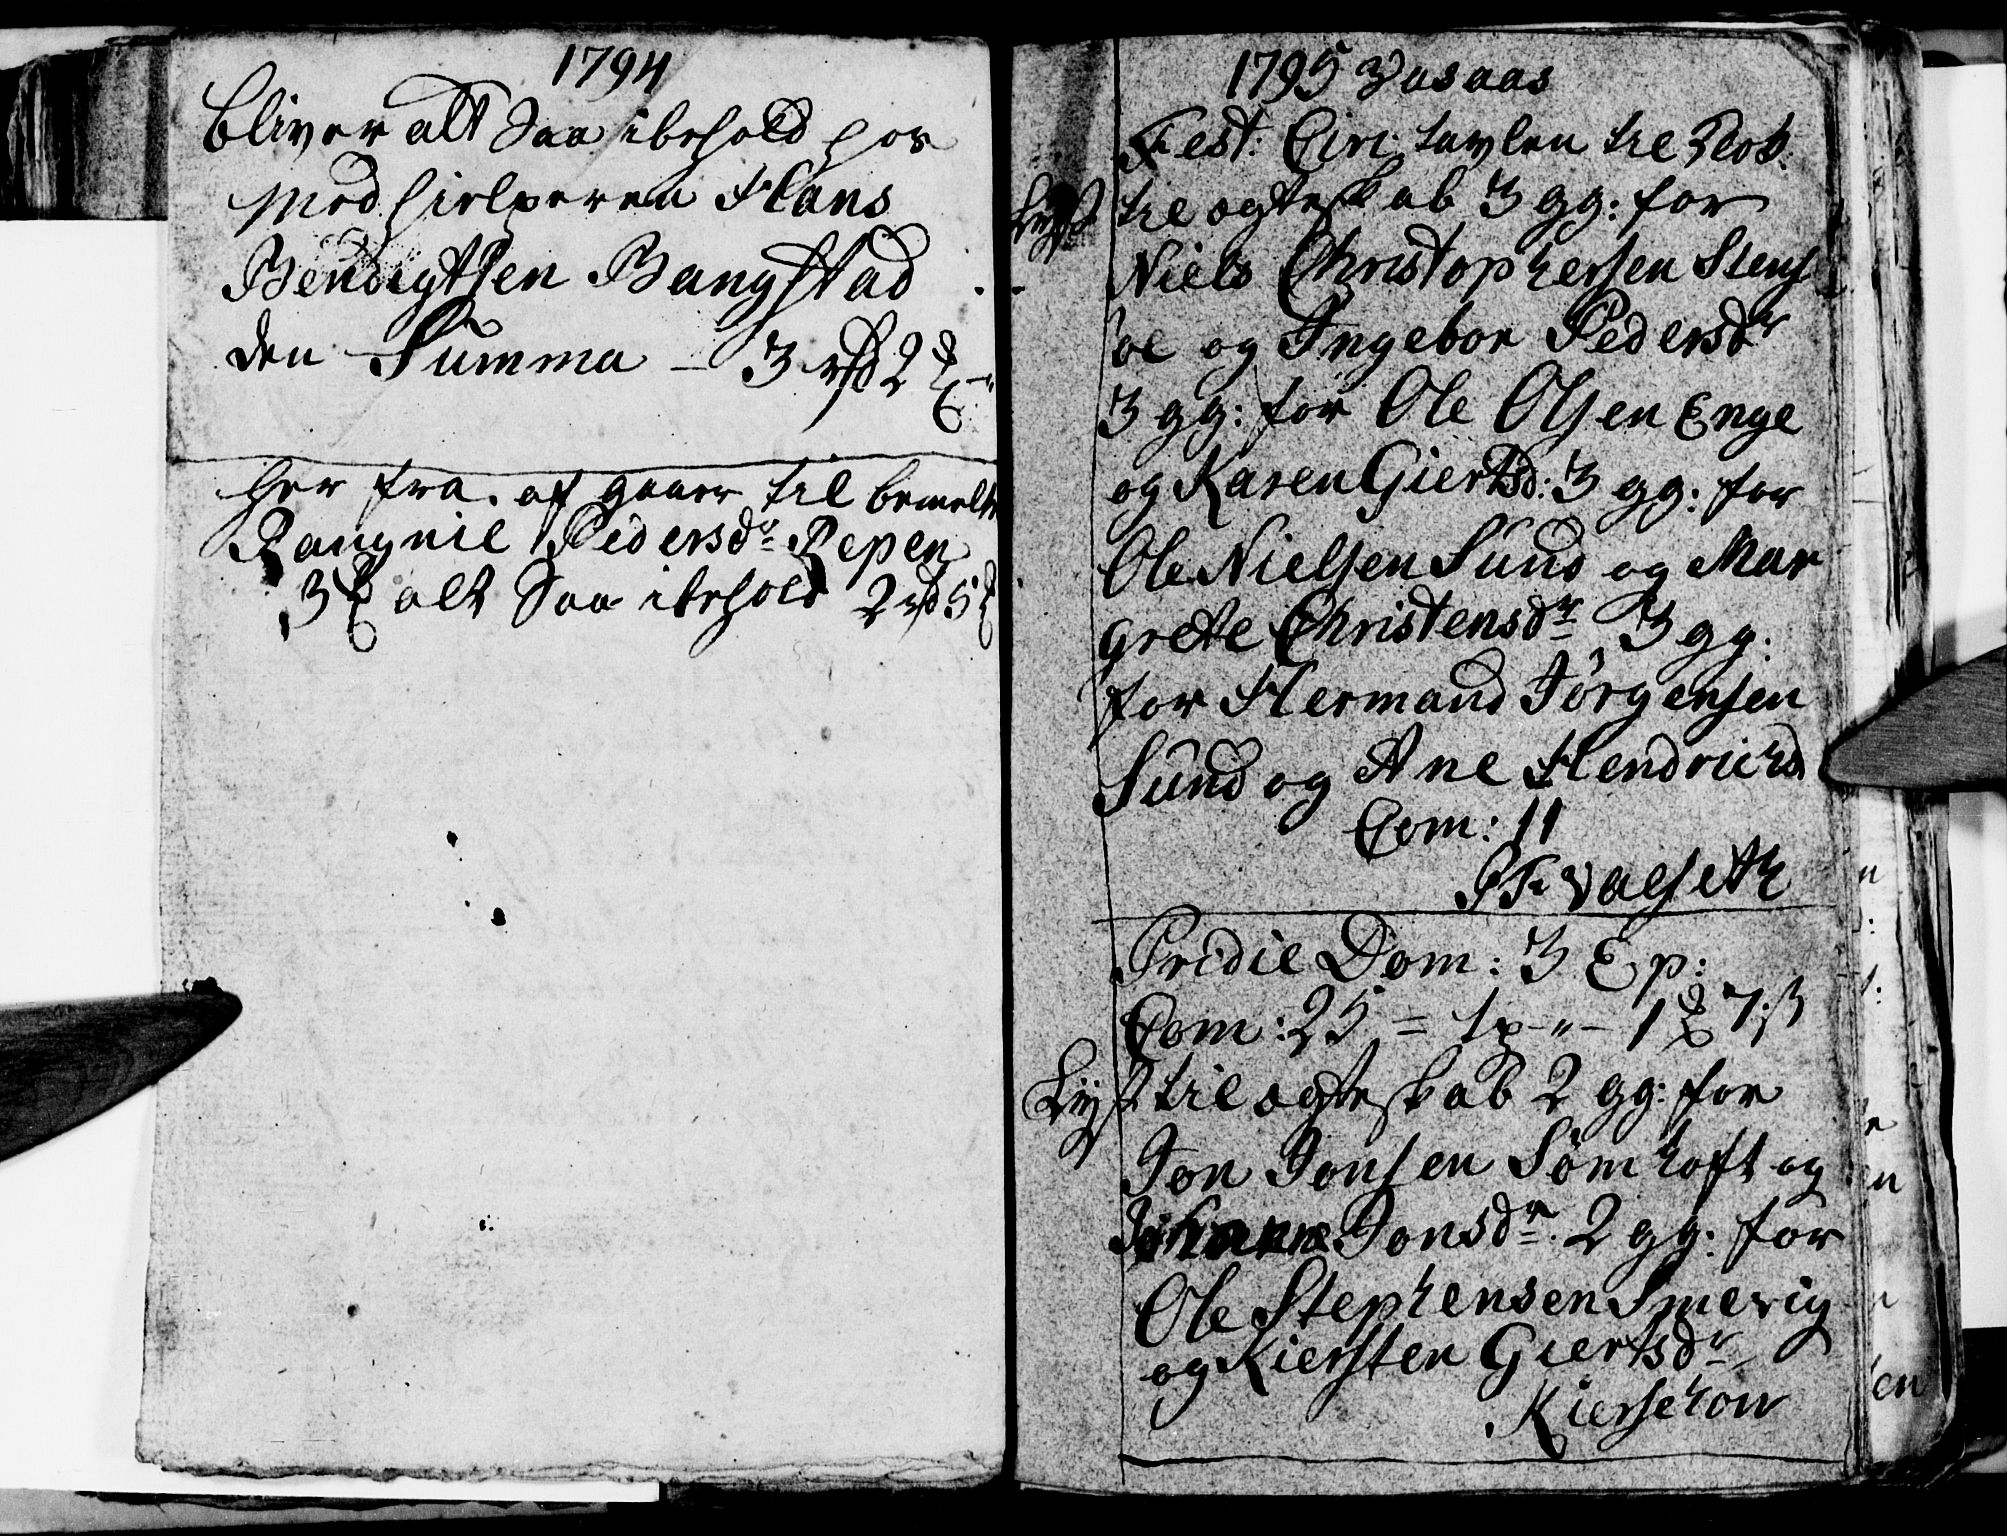 1794
bliver alt Saa ibehold hos
Medhielperen Hans
Bendigtsen Bangstad
den Summa - 3 rd 2
her fra afgaaer til bemelte
Rangnil Pedersdr Repen
3 alt Saa ibehold 2 rd 5
1795
Fest: Circ: tavlen til
Lyst til ægteskab 3 gg: for
Niels Christophersen Stens
øe og Ingebor Pedersdr
3 gg: for Ole Olsen Enge
og Karen Giertsd: 3 gg: for
Ole Nielsen Sund og Mar
grete Christensdr 3 gg:
for Hermand Jørgensen
Sund og Ane Hendrichsd
Com: 11
Valseth
Pridie Dom: 3 Ep:
Com: 25 = 1 7 ; 3
Lyst til ægteskab 2 gg: for
Jon Jonsen Sømhoft og
Jonsdr. 2 gg: for
Ole Stephensen Smevig
og Kiersten Giertsdr